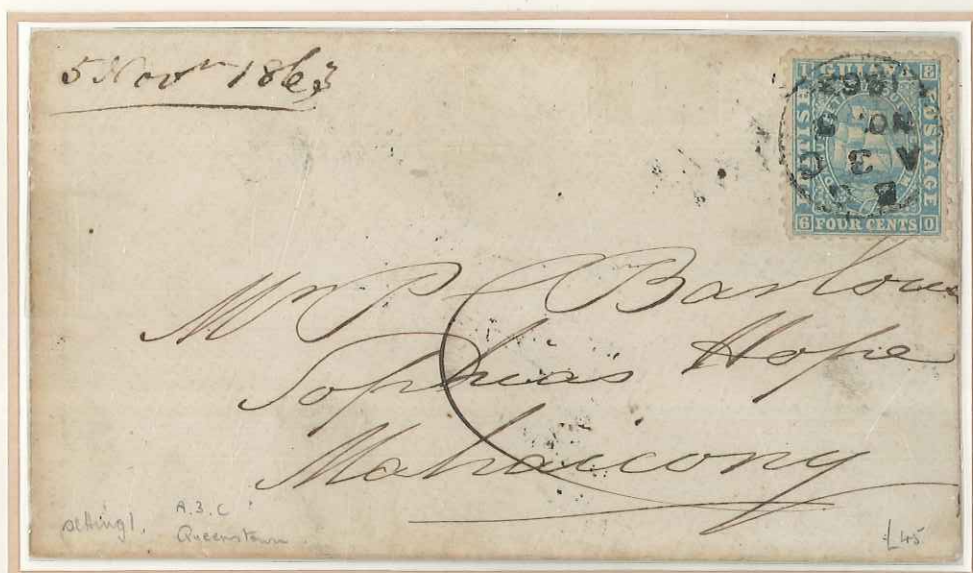 5 Novr 1863
BRITISH GUIANA POSTAGE
1 8 6 0
FOUR CENTS
1863
NO 5
A 3 C
Mr P Barlow
Sophias Hope
Mahaicony
setting 1.
A.3.C
Queenstown.
£45